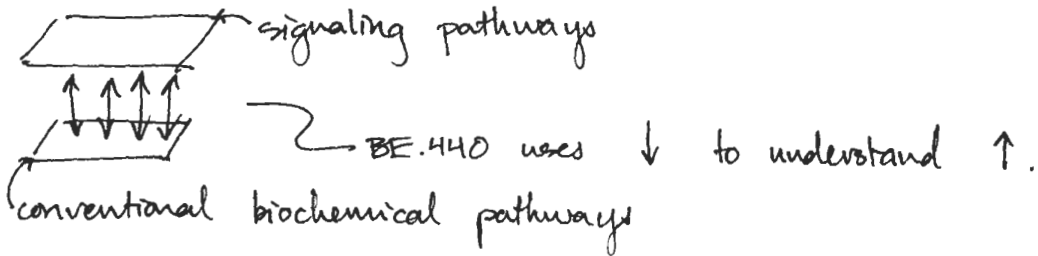 signaling pathways
BE.440 uses ↓ to understand ↑.
conventional biochemical pathways